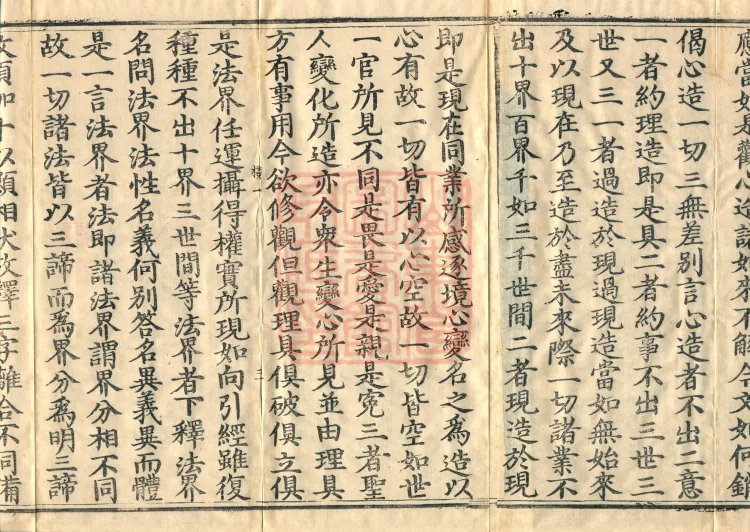 應當如是觀心造諸如來不解今文如何銷
偈心造一切三無差別言心造者不出二意
一者約理造即是具二者約事不出三世三
世又三一者過造於現過現造當如無始來
及以現在乃至造於盡未來際一切諸業不
出十界百界千如三千世間二者現造於現
即是現在同業所感逐境心變名之為造以
心有故一切皆有以心空故一切皆空如世
一官所見不同是畏是愛是親是冤三者聖
人變化所造亦令衆生變心所見並由理具
方有事用今欲修觀但觀理具俱破俱立俱
是法界任運攝得權實所現如向引經雖復
種種不出十界三世間等法界者下釋法界
名問法界法性名義何別答名異義異而體
是一言法界者法即諸法界謂界分相不同
故一切諸法皆以三諦而為界分為明三諦
文頭加十以顯相狀故釋三字離合不同備